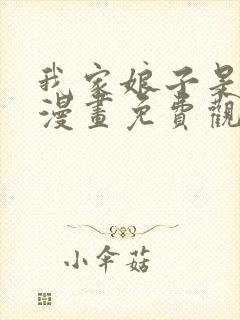 我家娘子呆
漫畫免費觀
小傘菇